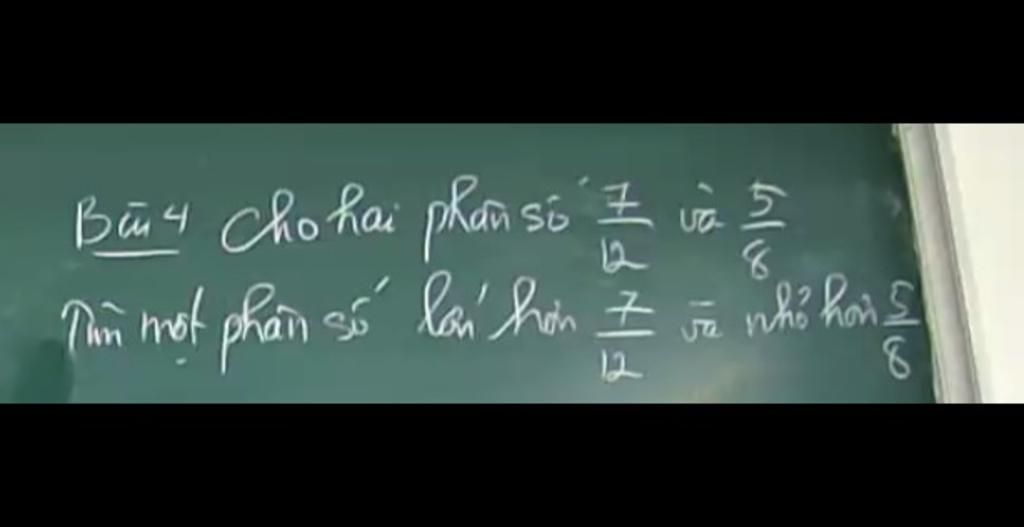 Bài 4 Cho hai phân số 7/12 và 5/8
Tìm một phân số lớn hơn 7/12 và nhỏ hơn 5/8